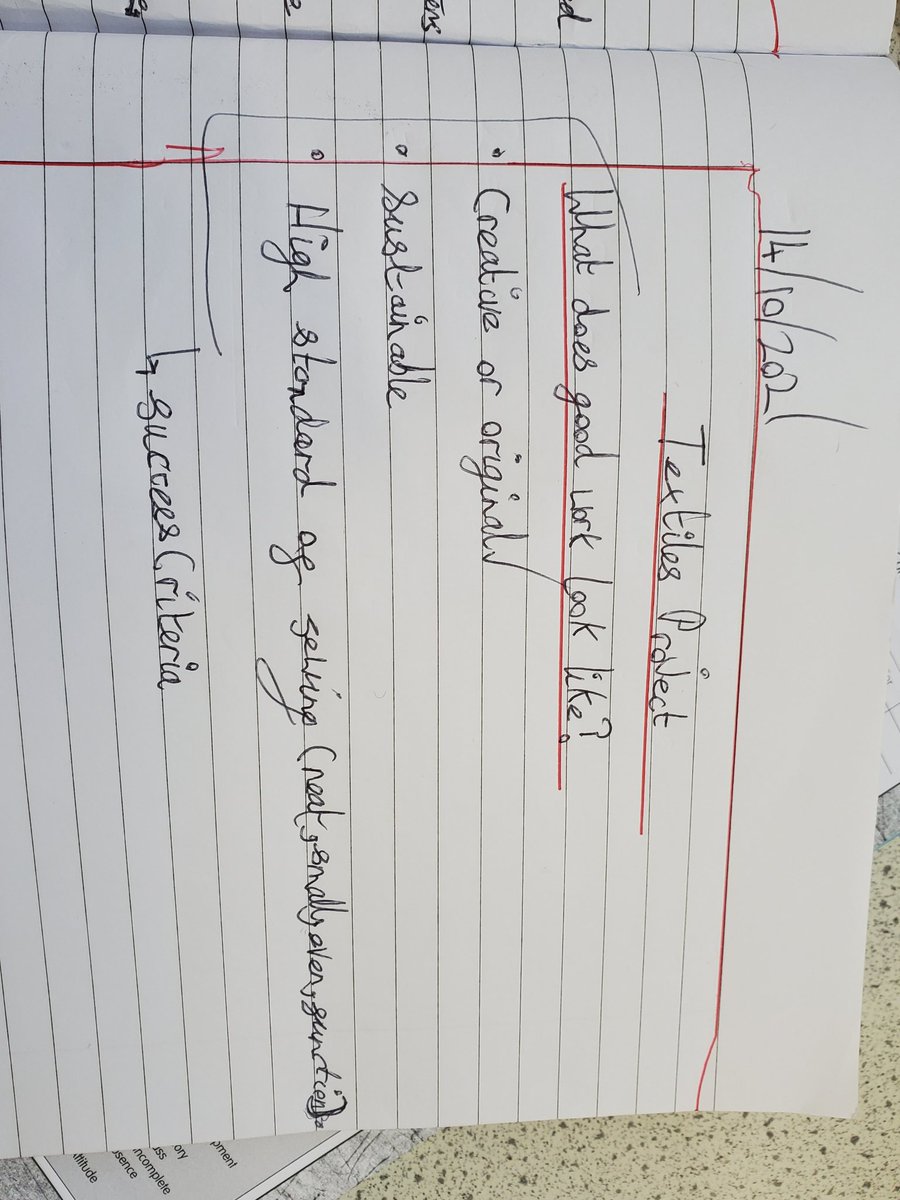 14/10/2021
Textiles Project
What does good work look like?
• Creative or original
• Sustainable
• High standard of sewing (neat, small, even,
↳ Succees Criteria
ens
e
d
pment
ory
ss
ncomplete
sence
ttitude